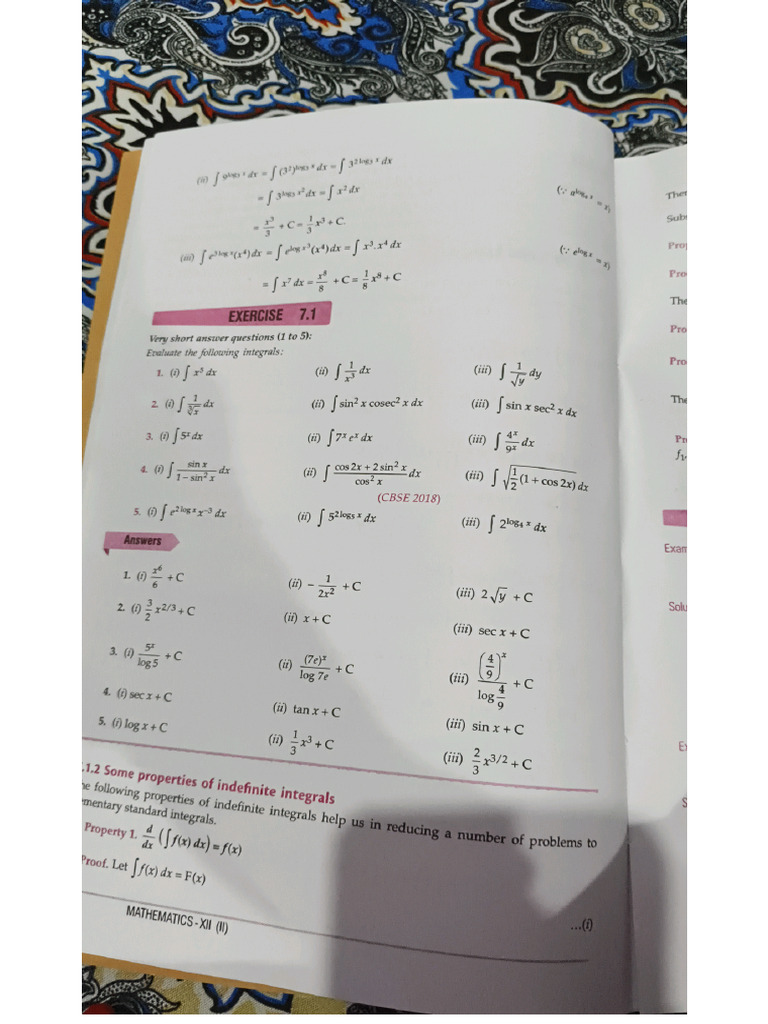 (ii) ∫ 9^(log₃ x) dx = ∫ (3²)^(log₃ x) dx = ∫ 3^(2 log₃ x) dx
= ∫ 3^(log₃ x²) dx = ∫ x² dx (∵ a^(logₐ x) = x)
= x³/3 + C = 1/3 x³ + C.
(iii) ∫ e^(3 log x)(x⁴) dx = ∫ e^(log x³)(x⁴) dx = ∫ x³.x⁴ dx (∵ e^(log x) = x)
= ∫ x⁷ dx = x⁸/8 + C = 1/8 x⁸ + C
EXERCISE 7.1
Very short answer questions (1 to 5):
Evaluate the following integrals:
1. (i) ∫ x⁵ dx (ii) ∫ 1/x³ dx (iii) ∫ 1/√y dy
2. (i) ∫ 1/∛x dx (ii) ∫ sin² x cosec² x dx (iii) ∫ sin x sec² x dx
3. (i) ∫ 5ˣ dx (ii) ∫ 7ˣ eˣ dx (iii) ∫ 4ˣ/9ˣ dx
4. (i) ∫ sin x/(1 – sin² x) dx (ii) ∫ (cos 2x + 2 sin² x)/cos² x dx (iii) ∫ √(1/2 (1 + cos 2x)) dx
(CBSE 2018)
5. (i) ∫ e^(2 log x) x⁻³ dx (ii) ∫ 5^(2 log₅ x) dx (iii) ∫ 2^(log₄ x) dx
Answers
1. (i) x⁶/6 + C (ii) – 1/2x² + C (iii) 2√y + C
2. (i) 3/2 x^(2/3) + C (ii) x + C (iii) sec x + C
3. (i) 5ˣ/log 5 + C (ii) (7e)ˣ/log 7e + C (iii) (4/9)ˣ/log 4/9 + C
4. (i) sec x + C (ii) tan x + C (iii) sin x + C
5. (i) log x + C (ii) 1/3 x³ + C (iii) 2/3 x^(3/2) + C
.1.2 Some properties of indefinite integrals
he following properties of indefinite integrals help us in reducing a number of problems to
ementary standard integrals.
Property 1. d/dx (∫ f(x) dx) = f(x)
Proof. Let ∫ f(x) dx = F(x) ...(i)
MATHEMATICS - XII (II)
Ther
Subs
Pro
The
Pro
Pro
The
f₁
Exam
Solu